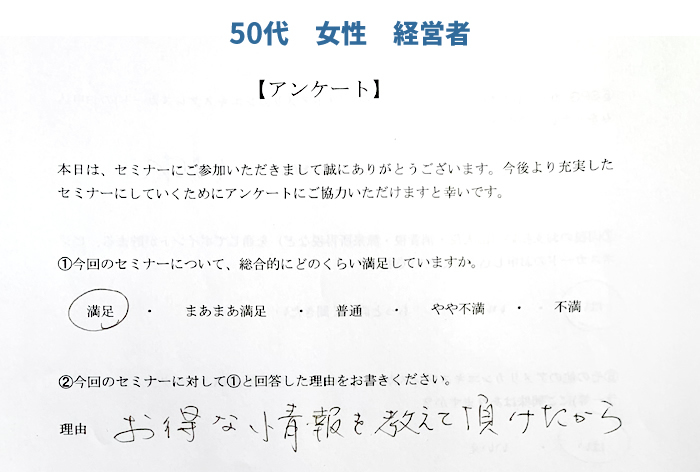 50代　女性　経営者
【アンケート】
本日は、セミナーにご参加いただきまして誠にありがとうございます。今後より充実した
セミナーにしていくためにアンケートにご協力いただけますと幸いです。
①今回のセミナーについて、総合的にどのくらい満足していますか。
満足　・　まあまあ満足　・　普通　・　やや不満　・　不満
②今回のセミナーに対して①と回答した理由をお書きください。
理由　お得な情報を教えて頂けたから